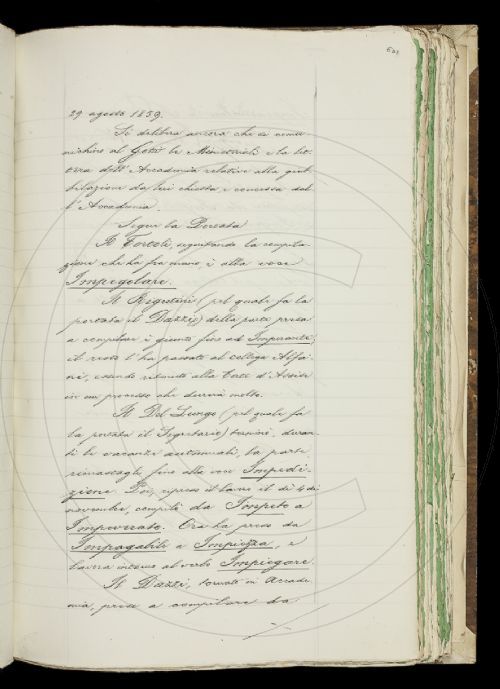 29 agosto 1859.
Si delibera ancora che si comu-
nichino al Gotti le Ministeriali e la let-
tera dell'Accademia relative alla giub-
bilazione da lui chiesta e concessa dal-
l'Accademia.
Segue la Portata
Il Tortoli, seguitando la compila-
zione che ha fra mano, è alla voce
Impegolare.
Il Rigutini (pel quale fa la
portata il Dazzi) della parte presa
a compilare è giunto fino ad Imperante,
il resto l'ha passato al collega Alfa-
ni, essendo chiamato alla Corte d'Assise
in un processo che durerà molto.
Il Del Lungo (pel quale fa
la portata il Segretario) terminò, duran-
ti le vacanze autunnali, la parte
rimastagli, fino alla voce Impedi-
zione. Poi, ripreso il lavoro il dì 4 di
novembre, compilò da Impeto a
Imperversato. Ora ha preso da
Impagabili a Impiezza, e
lavora intorno al verbo Impiegare.
Il Dazzi, tornato in Accade-
mia, prese a compilare da